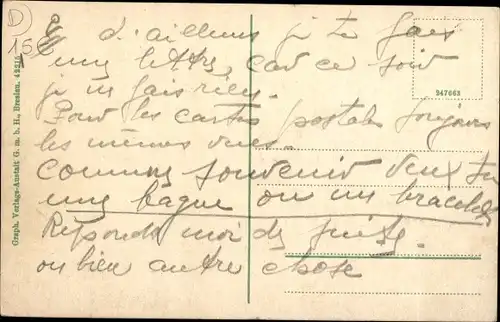 D
15
d'ailleurs je te fais
une lettre, car ce soir
je ne fais rien.
Pour les cartes postales toujours
les mêmes vues.
Comme souvenir veux tu
une bague ou un bracelet
Réponds moi de suite.
ou bien autre chose
347663
Graph. Verlags-Anstalt G. m. b. H., Breslau.